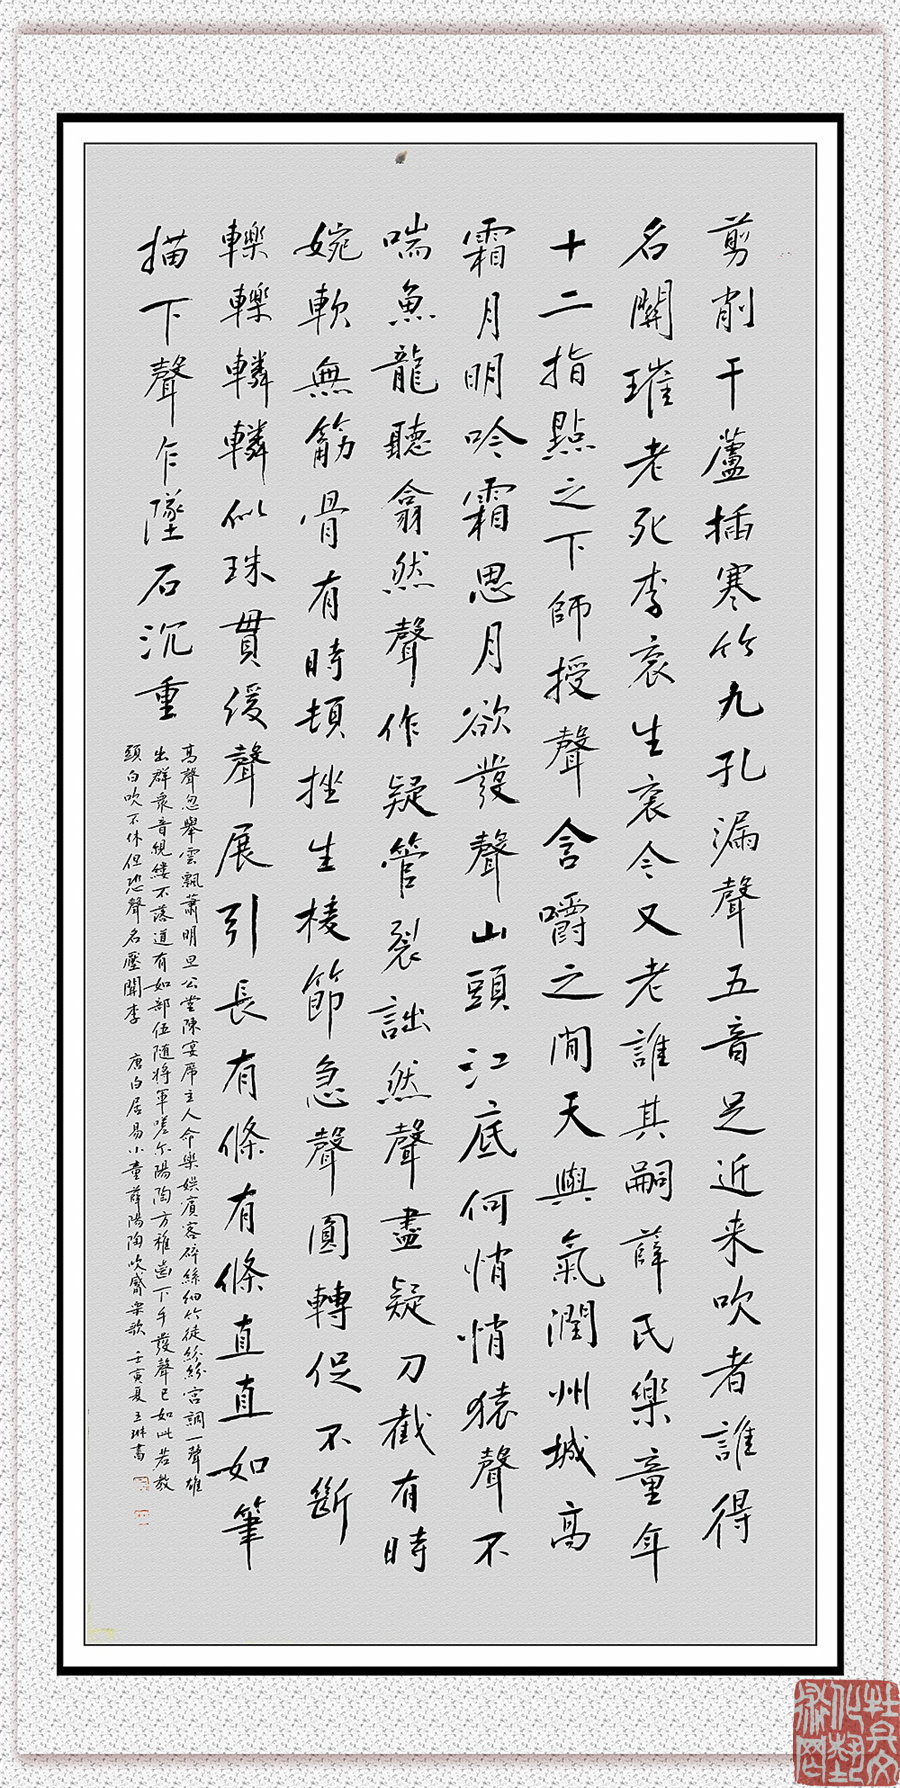 剪削干蘆插寒竹九孔漏聲五音足近来吹者誰得
名關璀老死李衮生衮今又老誰其嗣薛氏樂童年
十二指點之下師授聲含嚼之間天與氣潤州城高
霜月明吟霜思月欲發聲山頭江底何悄悄猿聲不
喘魚龍聽翕然聲作疑管裂詘然聲盡疑刀截有時
婉軟無筋骨有時頓挫生棱節急聲圓轉促不斷
轢轢轔轔似珠貫缓聲展引長有條有條直直如筆
描下聲乍墜石沉重
高聲忽舉雲飄蕭明旦公堂陳宴席主人命樂娱賓客碎絲細竹徒紛紛宫調一聲雄
出群衆音覶縷不落道有如部伍随將軍嗟尔陽陶方稚齒下手發聲已如此若教
頭白吹不休但恐聲名壓關李 唐白居易小童薛陽陶吹觱栗歌 壬寅夏玉琳書